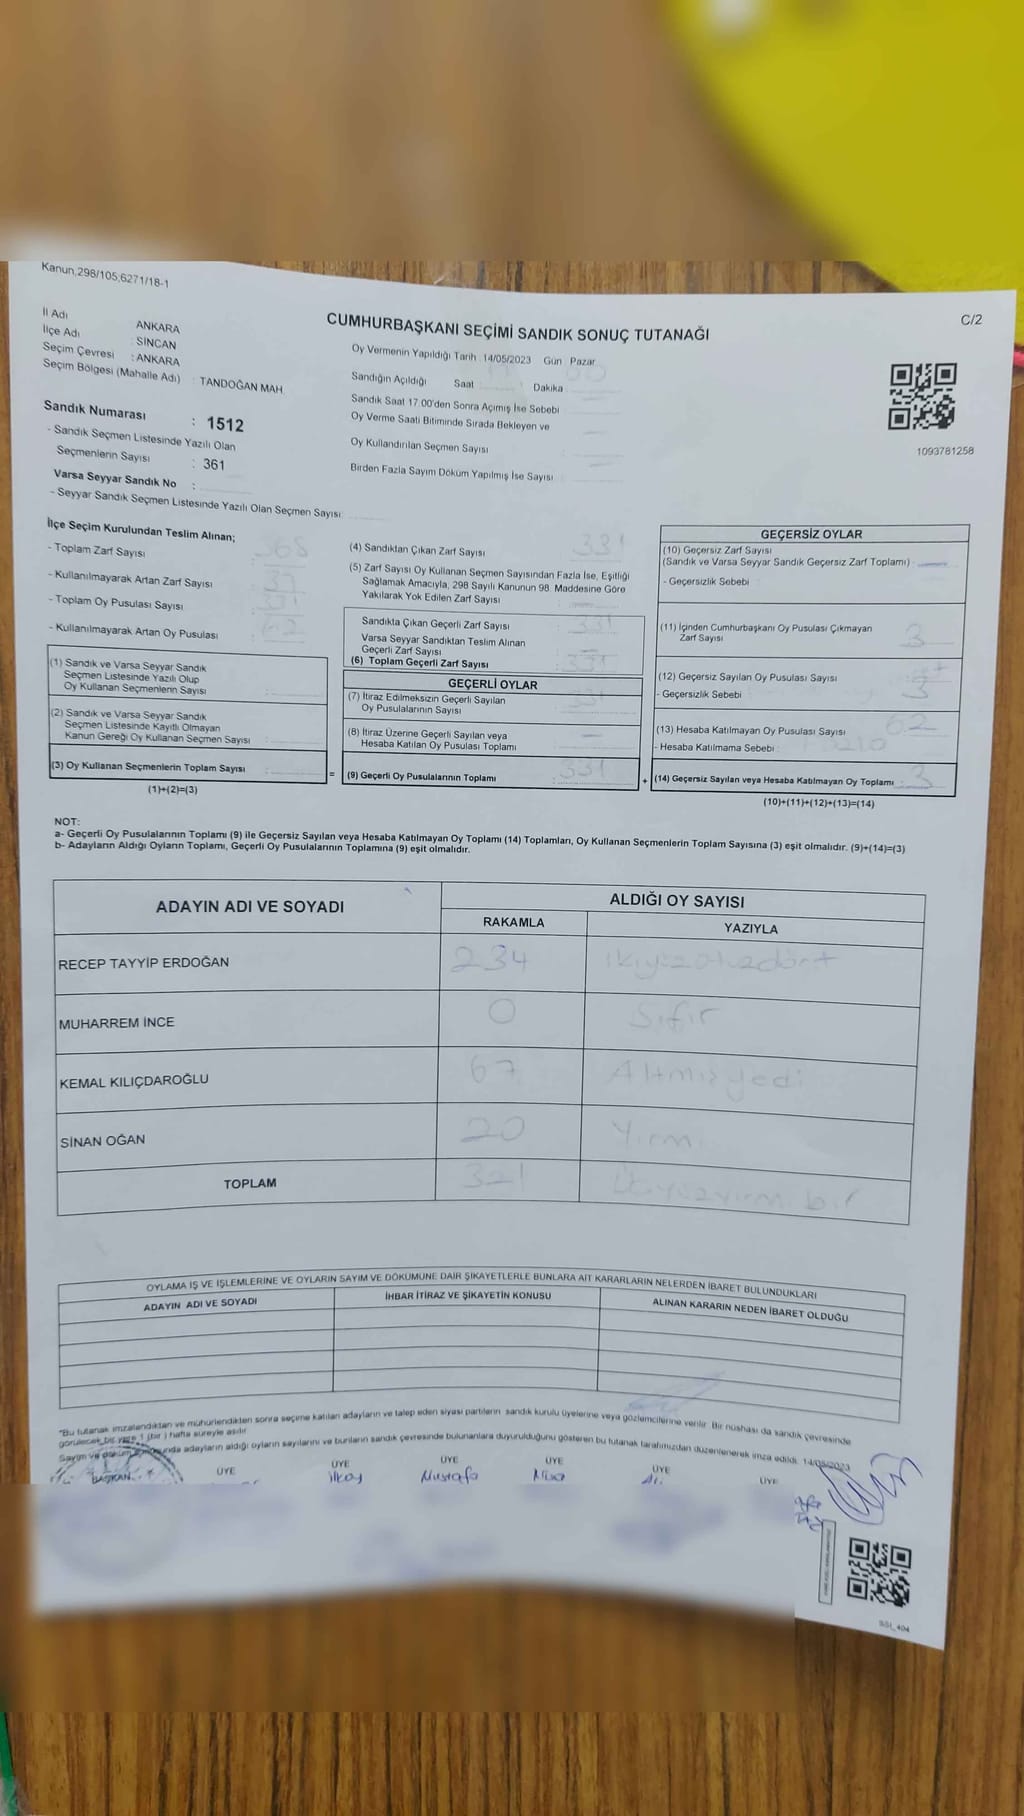 Kanun,298/105,6271/18-1
C/2
CUMHURBAŞKANI SEÇİMİ SANDIK SONUÇ TUTANAĞI
İl Adı ANKARA
İlçe Adı : SİNCAN
Seçim Çevresi : ANKARA
Seçim Bölgesi (Mahalle Adı) : TANDOĞAN MAH.
Sandık Numarası : 1512
- Sandık Seçmen Listesinde Yazılı Olan
Seçmenlerin Sayısı : 361
Varsa Seyyar Sandık No :
- Seyyar Sandık Seçmen Listesinde Yazılı Olan Seçmen Sayısı:
Oy Vermenin Yapıldığı Tarih :14/05/2023 Gün : Pazar
Sandığın Açıldığı Saat Dakika
Sandık Saat 17.00'den Sonra Açımış İse Sebebi
Oy Verme Saati Bitiminde Sırada Bekleyen ve
Oy Kullandırılan Seçmen Sayısı
Birden Fazla Sayım Döküm Yapılmış İse Sayısı
1093781258
İlçe Seçim Kurulundan Teslim Alınan;
- Toplam Zarf Sayısı
- Kullanılmayarak Artan Zarf Sayısı
- Toplam Oy Pusulası Sayısı
- Kullanılmayarak Artan Oy Pusulası
(1) Sandık ve Varsa Seyyar Sandık
Seçmen Listesinde Yazılı Olup
Oy Kullanan Seçmenlerin Sayısı
(2) Sandık ve Varsa Seyyar Sandık
Seçmen Listesinde Kayıtlı Olmayan
Kanun Gereği Oy Kullanan Seçmen Sayısı :
(3) Oy Kullanan Seçmenlerin Toplam Sayısı =
(1)+(2)=(3)
(4) Sandıktan Çıkan Zarf Sayısı 331
(5) Zarf Sayısı Oy Kullanan Seçmen Sayısından Fazla İse, Eşitliği
Sağlamak Amacıyla, 298 Sayılı Kanunun 98. Maddesine Göre
Yakılarak Yok Edilen Zarf Sayısı
Sandıkta Çıkan Geçerli Zarf Sayısı 331
Varsa Seyyar Sandıktan Teslim Alınan
Geçerli Zarf Sayısı
(6) Toplam Geçerli Zarf Sayısı 331
GEÇERLİ OYLAR
(7) İtiraz Edilmeksizin Geçerli Sayılan
Oy Pusulalarının Sayısı 331
(8) İtiraz Üzerine Geçerli Sayılan veya
Hesaba Katılan Oy Pusulası Toplamı
(9) Geçerli Oy Pusulalarının Toplamı 331 +
GEÇERSİZ OYLAR
(10) Geçersiz Zarf Sayısı
(Sandık ve Varsa Seyyar Sandık Geçersiz Zarf Toplamı)
- Geçersizlik Sebebi
(11) İçinden Cumhurbaşkanı Oy Pusulası Çıkmayan
Zarf Sayısı 3
(12) Geçersiz Sayılan Oy Pusulası Sayısı
- Geçersizlik Sebebi
(13) Hesaba Katılmayan Oy Pusulası Sayısı
- Hesaba Katılmama Sebebi
(14) Geçersiz Sayılan veya Hesaba Katılmayan Oy Toplamı : 3
(10)+(11)+(12)+(13)=(14)
NOT:
a- Geçerli Oy Pusulalarının Toplamı (9) ile Geçersiz Sayılan veya Hesaba Katılmayan Oy Toplamı (14) Toplamları, Oy Kullanan Seçmenlerin Toplam Sayısına (3) eşit olmalıdır. (9)+(14)=(3)
b- Adayların Aldığı Oyların Toplamı, Geçerli Oy Pusulalarının Toplamına (9) eşit olmalıdır.
ADAYIN ADI VE SOYADI ALDIĞI OY SAYISI
RAKAMLA YAZIYLA
RECEP TAYYİP ERDOĞAN 234 ikiyüzotuzdört
MUHARREM İNCE 0 Sıfır
KEMAL KILIÇDAROĞLU 67 Altmışyedi
SİNAN OĞAN 20 Yirmi
TOPLAM 321 Üçyüzyirmi bir
OYLAMA İŞ VE İŞLEMLERİNE VE OYLARIN SAYIM VE DÖKÜMÜNE DAİR ŞİKAYETLERLE BUNLARA AİT KARARLARIN NELERDEN İBARET BULUNDUKLARI
ADAYIN ADI VE SOYADI İHBAR İTİRAZ VE ŞİKAYETİN KONUSU ALINAN KARARIN NEDEN İBARET OLDUĞU
*Bu tutanak imzalandıktan ve mühürlendikten sonra seçime katılan adayların ve talep eden siyasi partilerin sandık kurulu üyelerine veya gözlemcilerine verilir. Bir nüshası da sandık çevresinde
görülecek bir yere 1 (bir) hafta süreyle asılır.
Sayım ve döküm sonunda adayların aldığı oyların sayılarını ve bunların sandık çevresinde bulunanlara duyurulduğunu gösteren bu tutanak tarafımızdan düzenlenerek imza edildi. 14/05/2023
BAŞKAN ÜYE ÜYE ÜYE ÜYE ÜYE ÜYE
İlkay Mustafa Nisa
SSI_404